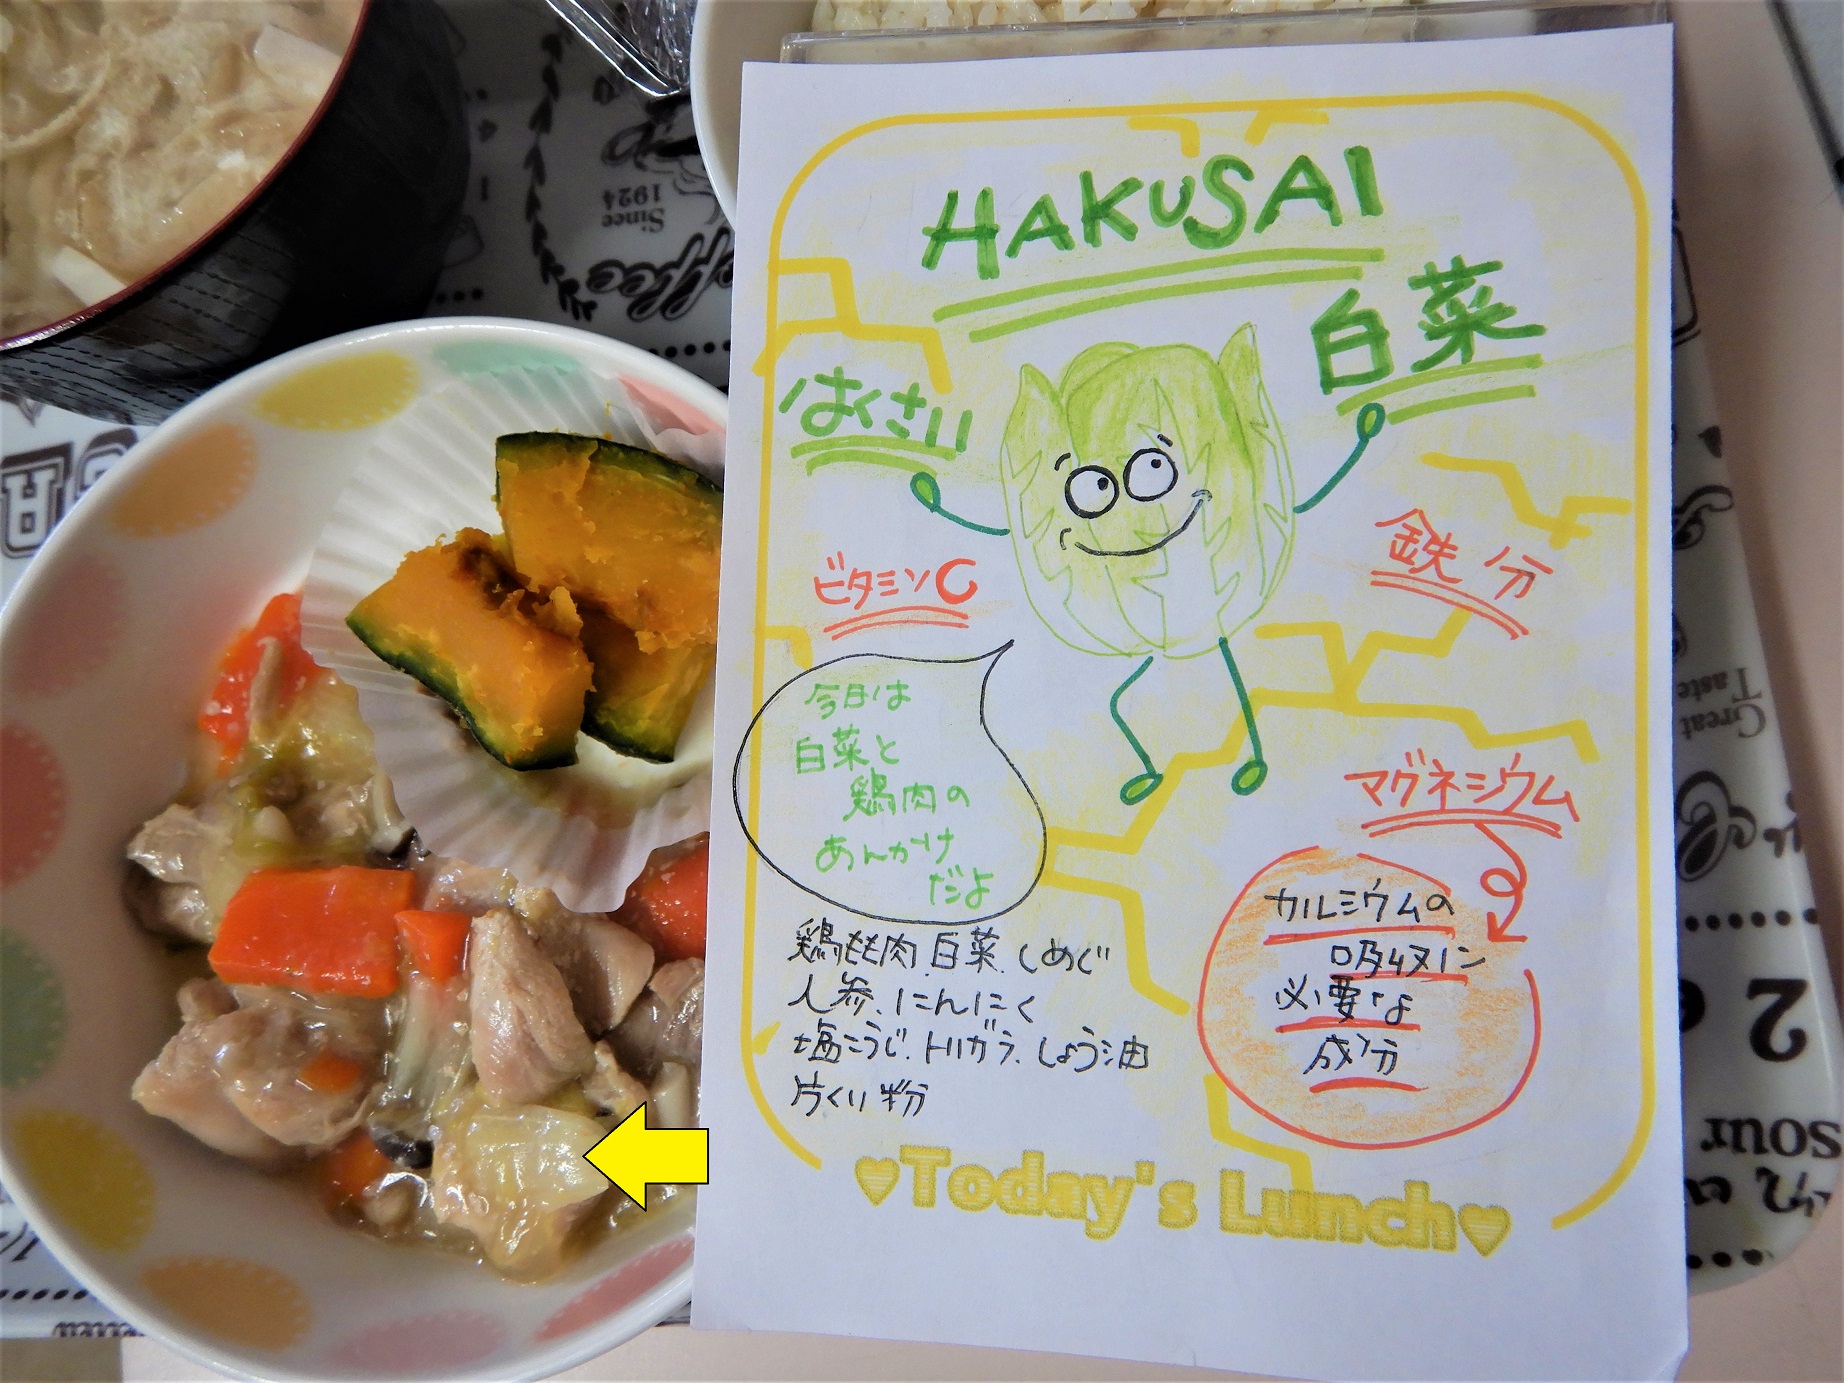 HAKUSAI
白菜
はくさい
ビタミンC
鉄分
今日は
白菜と
鶏肉の
あんかけ
だよ
マグネシウム
カルシウムの
吸収に
必要な
成分
鶏もも肉.白菜.しめじ
人参.にんにく
塩こうじ.トリガラ.しょう油
片くり粉
♥Today's Lunch♥
Since
1924
Coffee
Great
Taste
sour
2